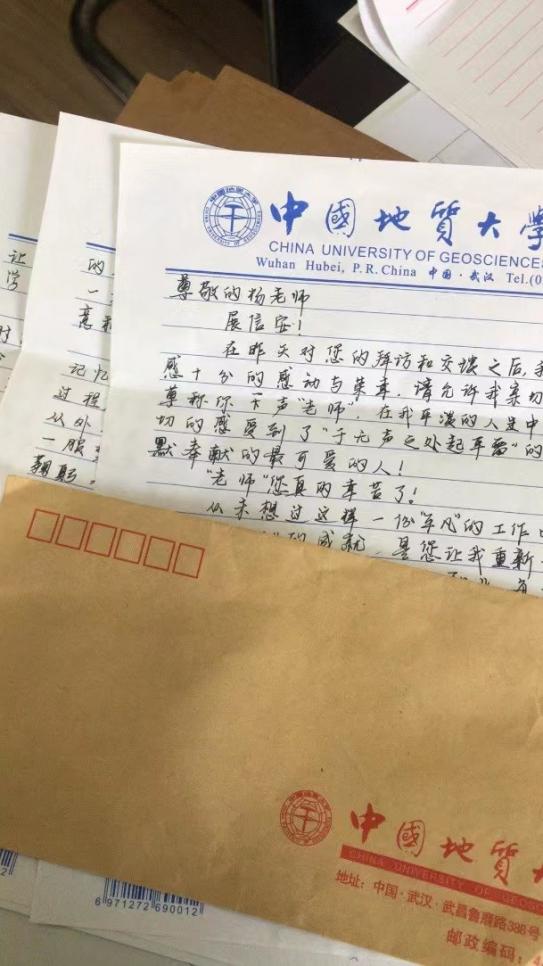 中國地質大學
CHINA UNIVERSITY OF GEOSCIENCES
Wuhan Hubei, P.R.China 中国·武汉 Tel.(0
尊敬的杨老师
展信安!
在昨天对您的拜访和交谈之后,我
感十分的感动与荣幸,请允许我亲切
尊称你一声"老师",在我平淡的人生中
切的感受到了"于无声之处起惊雷"的
默奉献的最可爱的人!
"老师"您真的辛苦了!
从未想过这样一份"平凡"的工作
的成就,是您让我重新
让
学
时,
的
一
记忆
过程
从外
一服
鞠躬
中國地質大
CHINA UNIVERSITY OF GEOSC
地址:中国·武汉·武昌鲁磨路388号
邮政编码:4
0012
6 971272 690012